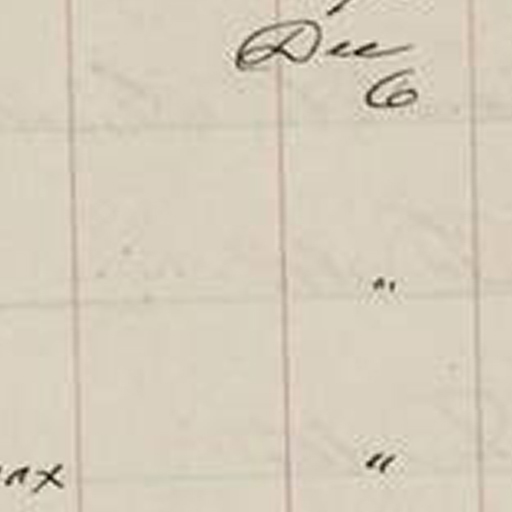 Dec
6
"
"